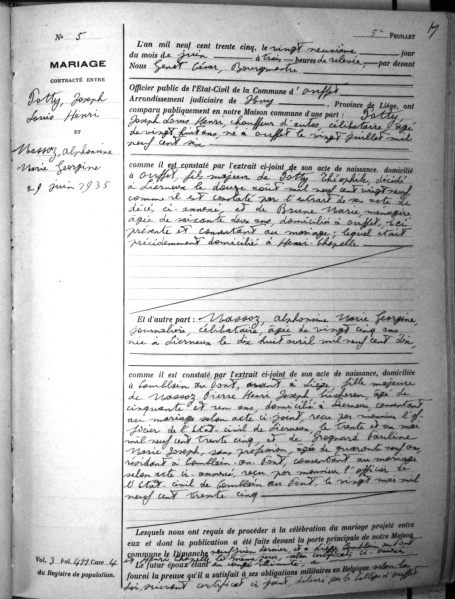 5e FEUILLET
No 5
MARIAGE
CONTRACTÉ ENTRE
Potty, Joseph
Louis Henri
ET
Massoz, Alphonsine
Marie Georgine
29 juin 1935
L'an mil neuf cent trente cinq, le vingt neuvième jour
du mois de juin à trois heures de relevée, par devant
Nous Genot César, Bourgmestre
Officier public de l'Etat-Civil de la Commune d'Ouffet
Arrondissement judiciaire de Huy, Province de Liége, ont
comparu publiquement en notre Maison commune d'une part : Potty,
Joseph Louis Henri, chauffeur d'autos, célibataire, âgé
de vingt huit ans, né à Ouffet le vingt juillet mil
neuf cent six
comme il est constaté par l'extrait ci-joint de son acte de naissance, domicilié
à Ouffet, fils majeur de Potty Théophile, décédé
à Lierneux le douze août mil neuf cent vingt neuf
comme il est constaté par l'extrait de son acte de
décès ci-annexé, et de Brune Marie, ménagère
âgée de soixante deux ans, domiciliée à Ouffet, ici
présente et consentant au mariage ; lequel était
précédemment domicilié à Henri-Chapelle
Et d'autre part : Massoz, Alphonsine Marie Georgine,
journalière, célibataire, âgée de vingt cinq ans,
née à Lierneux le dix huit avril mil neuf cent dix
comme il est constaté par l'extrait ci-joint de son acte de naissance, domiciliée
à Comblain au Pont, avant à Liège fille majeure
de Massoz Pierre Henri Joseph, âgé de
cinquante et un ans, domicilié à Lierneux consentant
au mariage selon acte ci-joint reçu par monsieur l'of-
ficier de l'état civil de Lierneux, le trente et un mai
mil neuf cent trente cinq, et de Grognard Pauline
Marie Joseph, sans profession, âgée de quarante neuf ans
résidant à Comblain au Pont consentant au mariage
selon acte ci-annexé, reçu par monsieur l'officier de
l'état civil de Comblain au Pont, le vingt mai mil
neuf cent trente cinq
Lesquels nous ont requis de procéder à la célébration du mariage projeté entre
eux et dont la publication a été faite devant la porte principale de notre Maison
commune le Dimanche neuf juin dernier, et à
et Henri Chapelle le même jour, selon certificats ci-
Le futur époux étant en congé illimité, a
fourni la preuve qu'il a satisfait à ses obligations militaires en Belgique selon la
loi, suivant certificat ci-joint, délivré par le collège d'Ouffet
Vol. 3 Fol. 477 Case 4
du Registre de population.